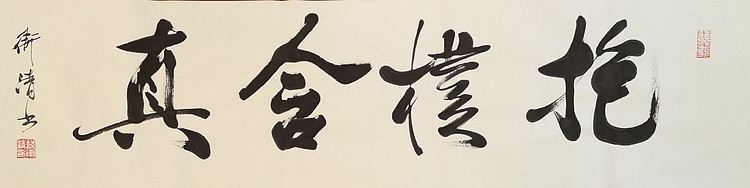 抱樸含真
衛清书